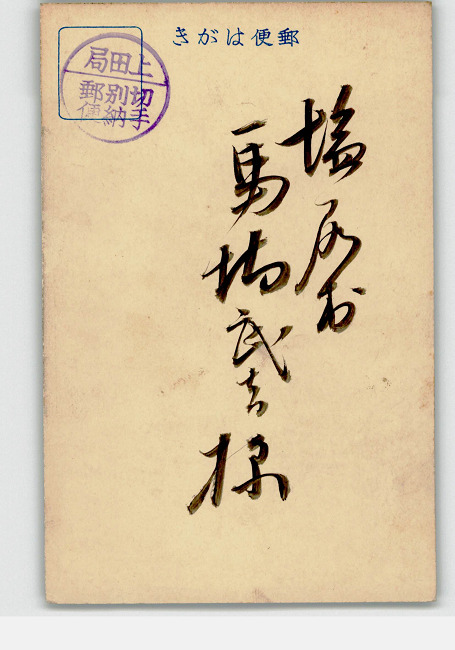 郵便はがき
上田局
切手別納郵便
塩尻村
馬場武吉様